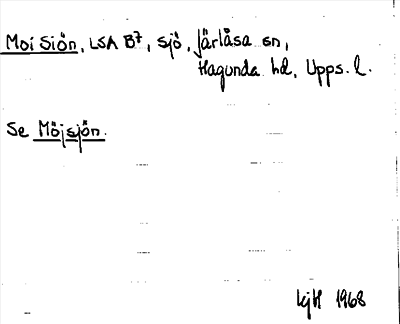 Moi Siön, LSA B7, sjö, Järlåsa sn,
Hagunda hd, Upps. l.
Se Möjsjön.
LjH 1968